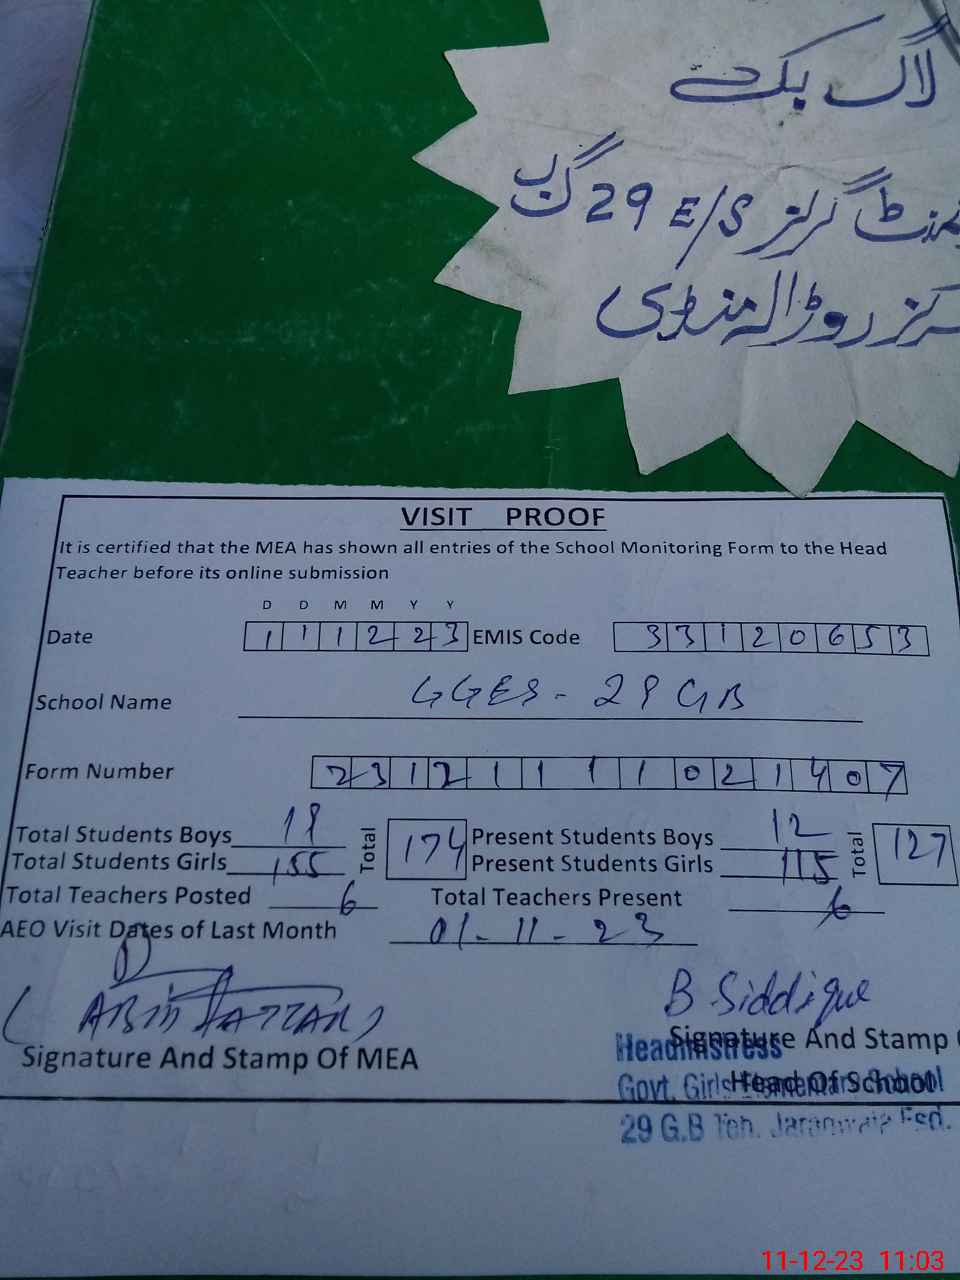 لاگ بک
گرلز E/S 29 گ ب
مرکز روڑالہ منڈی
VISIT PROOF
It is certified that the MEA has shown all entries of the School Monitoring Form to the Head
Teacher before its online submission
D D M M Y Y
Date 1 1 1 2 2 3 EMIS Code 3 3 1 2 0 6 5 3
School Name GGES - 29 GB
Form Number 2 3 1 2 1 1 1 1 0 2 1 4 0 7
Total Students Boys 19 Total 174 Present Students Boys 12 Total 127
Total Students Girls 155 Present Students Girls 115
Total Teachers Posted 6 Total Teachers Present 6
AEO Visit Dates of Last Month 01-11-23
B Siddique
Signature And Stamp Of MEA Signature And Stamp
Head Of School
Headmistress
Govt. Girls Elementary School
29 G.B Teh. Jaranwala Fsd.
11-12-23 11:03